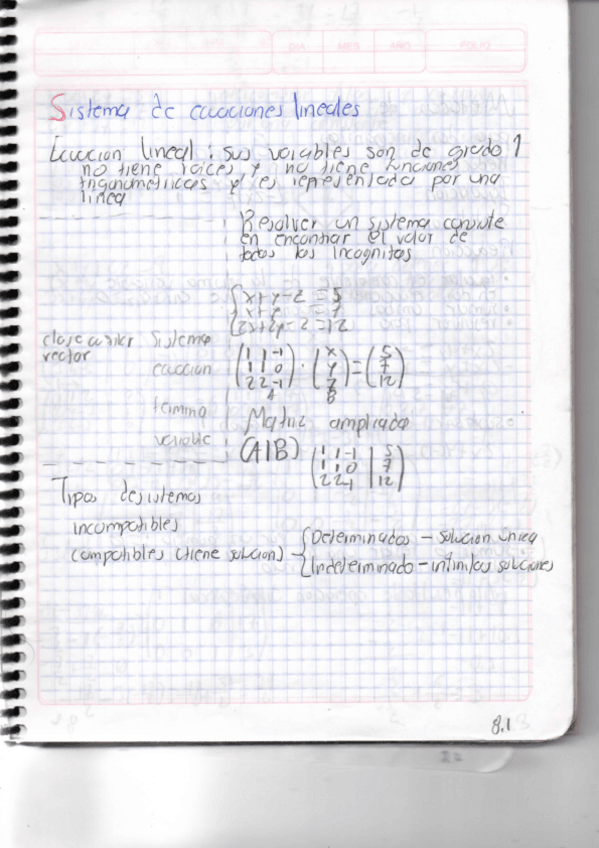 DIA MES AÑO FOLIO
Sistema de ecuaciones lineales
Ecuacion lineal : sus variables son de grado 1
no tiene raices y no tiene funciones
trigonometricas y es representada por una
linea
Resolver un sistema consiste
en encontrar el valor de
todas las incognitas
x+y-z=5
x+y=7
2x+2y-z=12
Sistema
vector
ecuacion
(1 1 -1) (x) (5)
(1 1 0) · (y) = (7)
(2 2 -1) (z) (12)
A B
termino
Matriz ampliada
variable
(A|B)
(1 1 -1 | 5)
(1 1 0 | 7)
(2 2 -1 | 12)
Tipos de sistemas
incompatibles
compatibles (tiene solucion) - { Determinados - solucion única
Indeterminado - infinitas soluciones
8.1